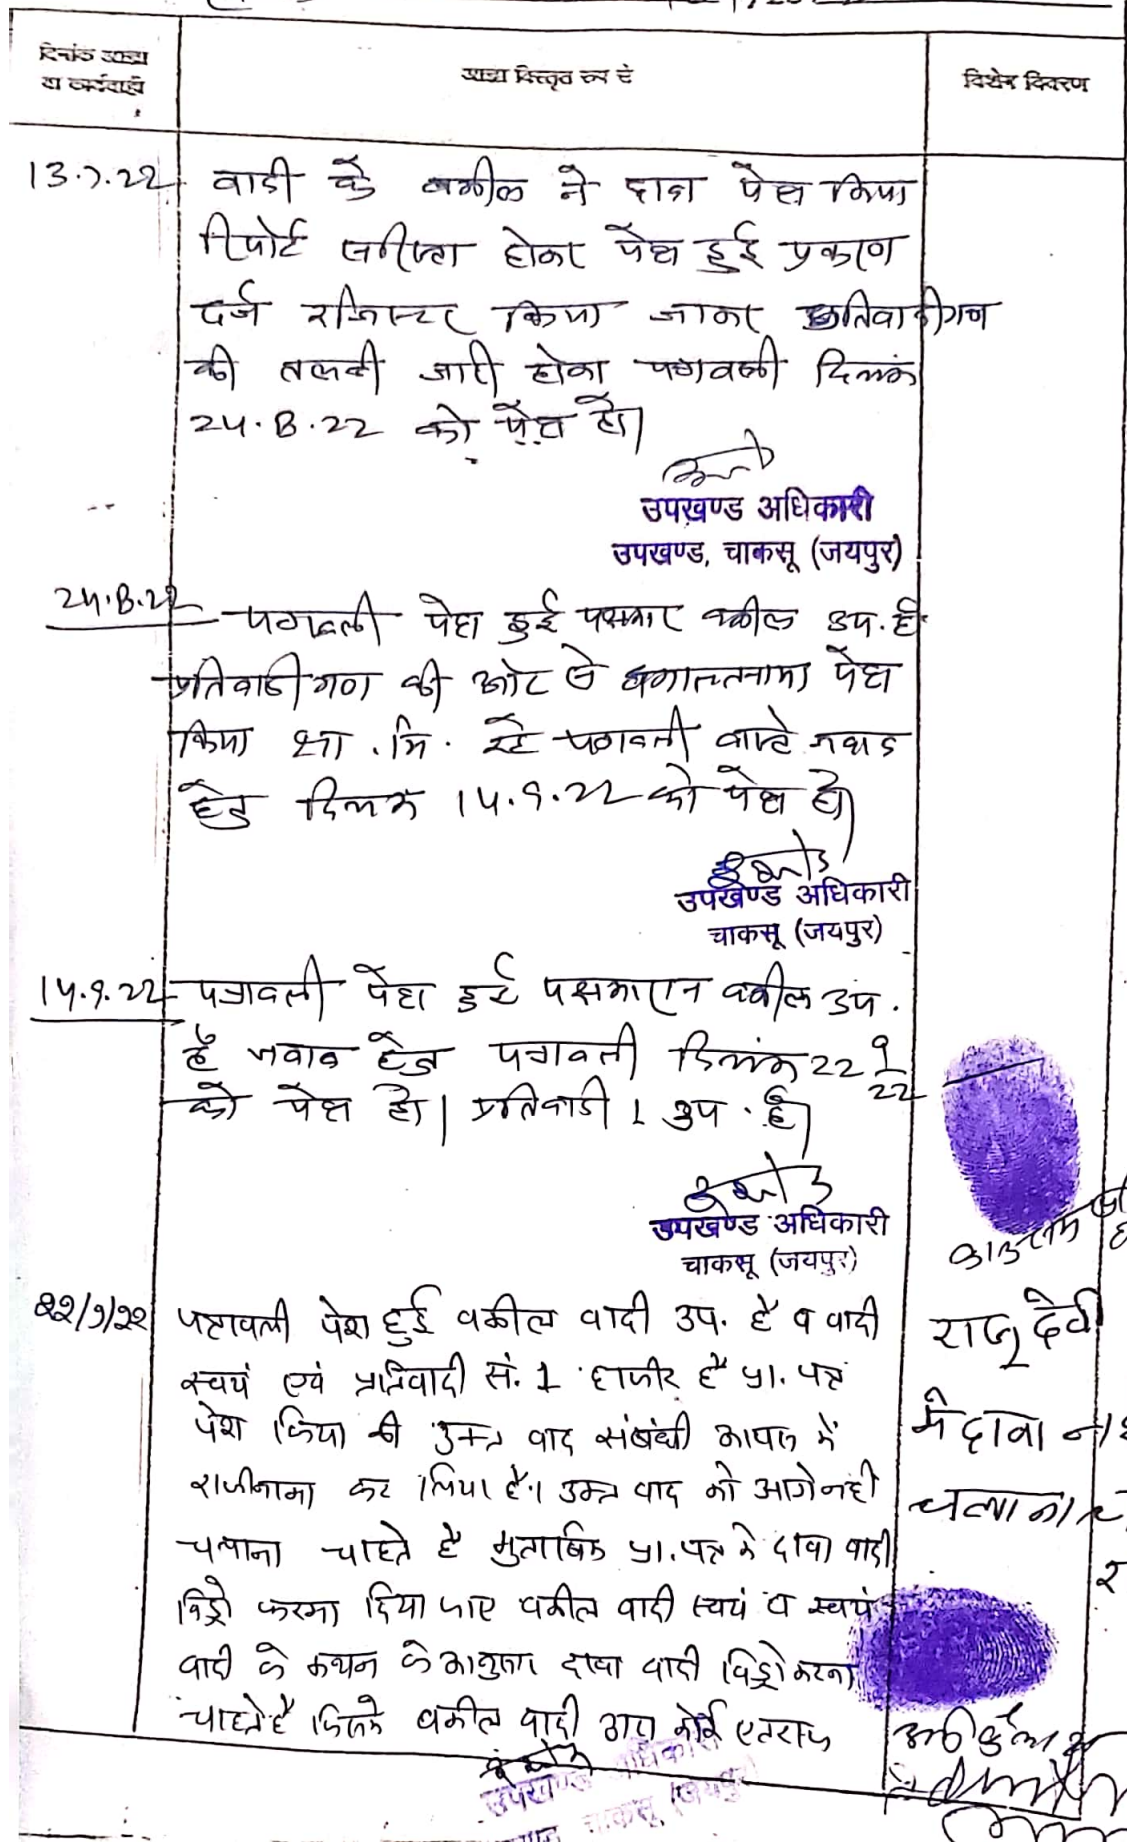 दिनांक आज्ञा
या कार्यवाही
आज्ञा विस्तृत रूप से
विशेष विवरण
13.7.22 वादी के वकील ने दावा पेश किया
रिपोर्ट होकर पेश हुई प्रकरण
दर्ज रजिस्टर किया जाकर प्रतिवादीगण
की तलबी जारी होकर पत्रावली दिनांक
24.8.22 को पेश हो।
उपखण्ड अधिकारी
उपखण्ड, चाकसू (जयपुर)
24.8.22 पत्रावली पेश हुई पक्षकार वकील उप. है
प्रतिवादीगण की ओर से वकालतनामा पेश
किया शा. मि. रहे पत्रावली वास्ते जवाब
हेतु दिनांक 14.9.22 को पेश हो।
उपखण्ड अधिकारी
चाकसू (जयपुर)
14.9.22 पत्रावली पेश हुई पक्षकारान वकील उप.
है जवाब हेतु पत्रावली दिनांक 22 9/22
को पेश हो। प्रतिवादी 1 उप. है।
उपखण्ड अधिकारी
चाकसू (जयपुर)
22/9/22 पत्रावली पेश हुई वकील वादी उप. है व वादी
स्वयं एवं प्रतिवादी सं. 1 हाजीर है प्रा. पत्र
पेश किया की उक्त वाद संबंधी आपस में
राजीनामा कर लिया है। उक्त वाद को आगे नही
चलाना चाहते है मुताबिक प्रा. पत्र के दावा वादी
विड्रो फरमा दिया जाए वकील वादी स्वयं व स्वयं
वादी के कथन के अनुसार दावा वादी विड्रो करना
चाहते है जिसके वकील वादी द्वारा कोई एतराज
राजू देवी
मे दावा
चलाना
उपखण्ड अधिकारी
चाकसू (जयपुर)